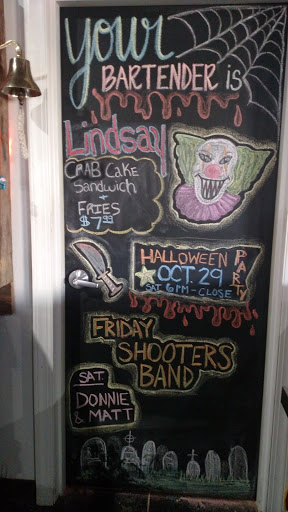 your
BARTENDER is
Lindsay
CRAB CAKE
Sandwich
+
FRIES
$7.99
HALLOWEEN
OCT. 29
SAT 6PM - CLOSE
PARTY
FRIDAY
SHOOTERS
BAND
SAT.
DONNIE
& MATT